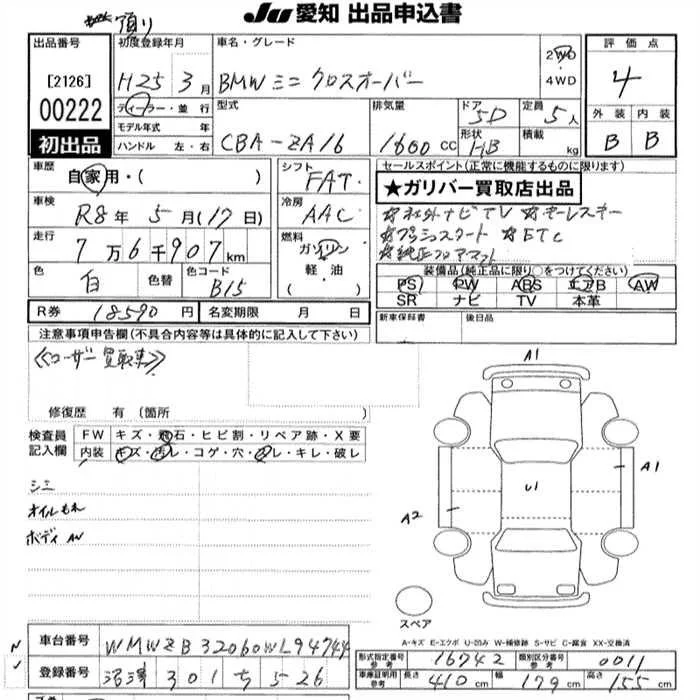 JU 愛知 出品申込書
出品番号
[2126]
00222
初出品
初度登録年月
H25年3月
ディーラー・並行
モデル年式 年
ハンドル 左・右
車名・グレード
BMWミニ クロスオーバー
2WD
4WD
型式
CBA-ZA16
排気量
1600CC
ドア
5D
形状
HB
定員
5人
積載
kg
評価点
4
外装 内装
B B
車歴
自家用・( )
車検
R8年5月(17日)
走行
7万6千907km
色
白
色替
色コード
B15
シフト
FAT
冷房
AAC
燃料
ガソリン
軽・油
セールスポイント(正常に機能するものに限ります)
★ガリバー買取店出品
☆社外ナビTV ☆キーレスキー
☆プッシュスタート ☆ETC
☆純正フロアマット
装備品(純正品に限り○をつけてください)
PS PW ABS エアB AW
SR ナビ TV 本革
新車保証書
後日品
R券 18590円
名変期限 月 日
注意事項申告欄(不具合内容等は具体的に記入して下さい)
《ユーザー買取車》
修復歴 有(箇所
検査員
記入欄
FW キズ・飛石・ヒビ割・リペア跡・X要
内装 キズ・汚レ・コゲ・穴・スレ・キレ・破レ
シミ
オイルもれ
ボディAW
A1
A1
U1
A2
スペア
A-キズ E-エクボ U-凹み W-補修跡 S-サビ C-腐食 XX-交換済
車台番号 WMWZB32060WL94744
登録番号 沼津 301 ち 526
形式指定番号
参考
16742
類別区分番号
参考
0011
車庫証明用
参考
長さ 410cm
幅 179cm
高さ 155cm